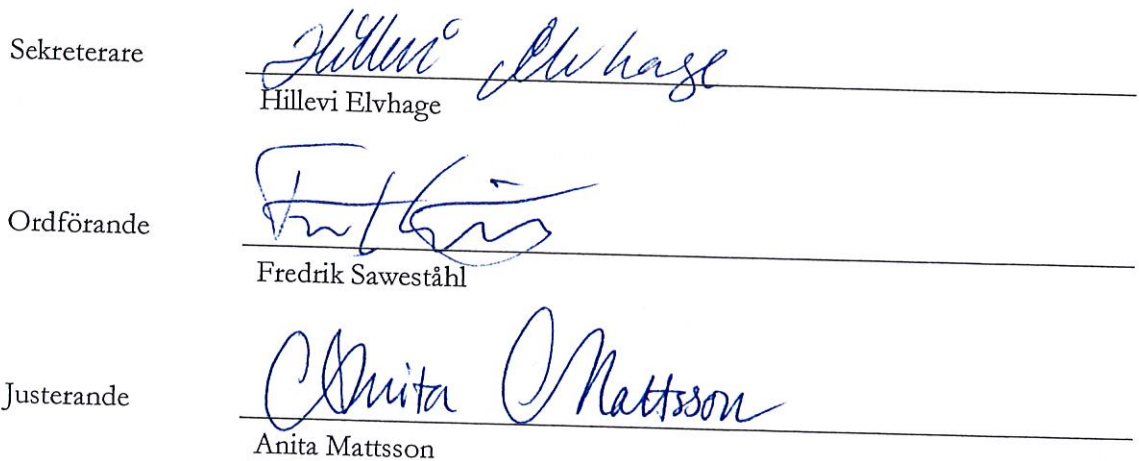 Sekreterare
Hillevi Elvhage
Hillevi Elvhage
Ordförande
Fredrik Saweståhl
Justerande
Anita Mattsson
Anita Mattsson